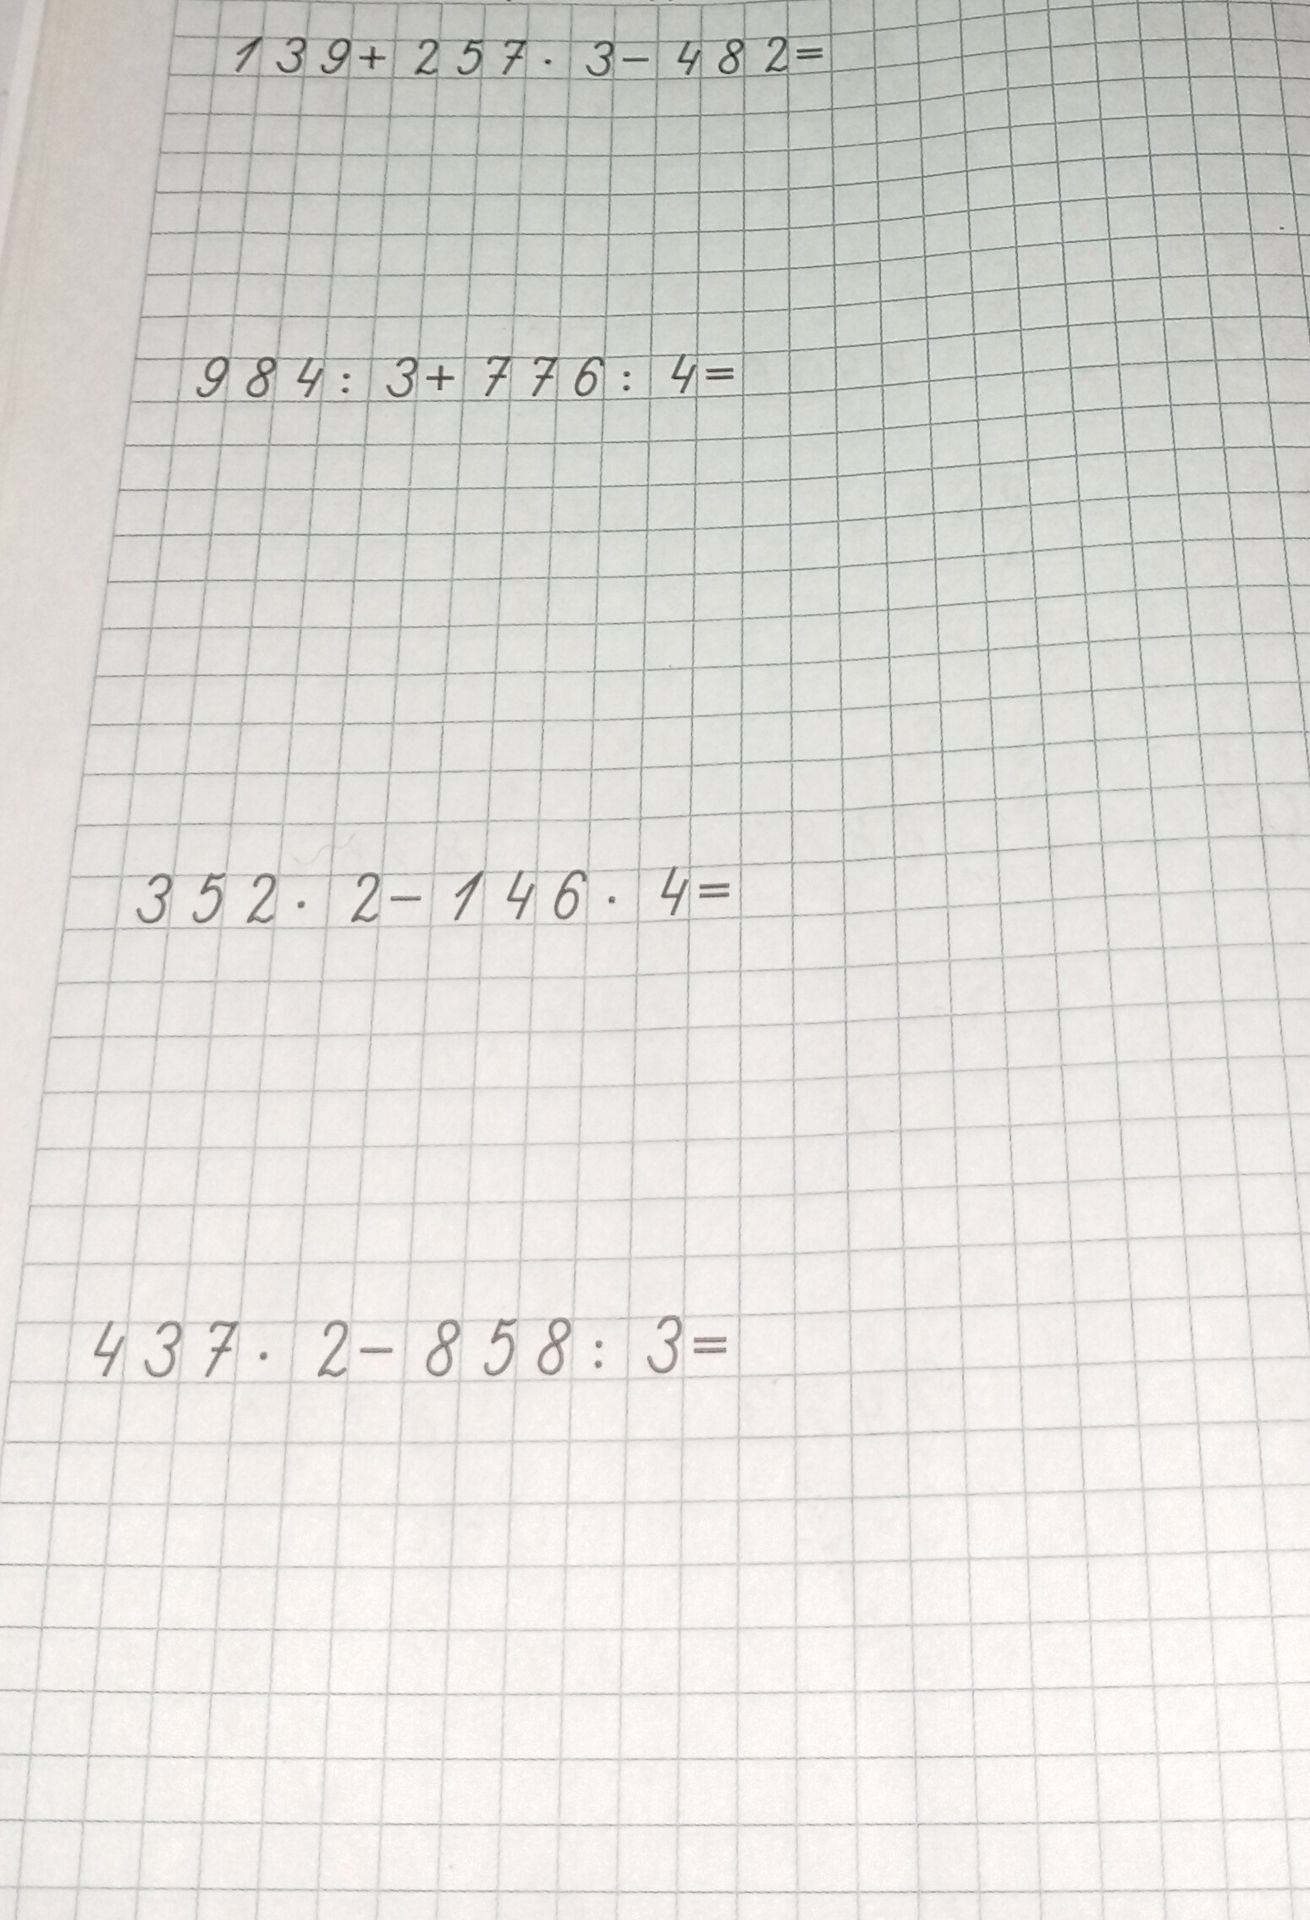 139+257·3-482=
984:3+776:4=
352·2-146·4=
437·2-858:3=